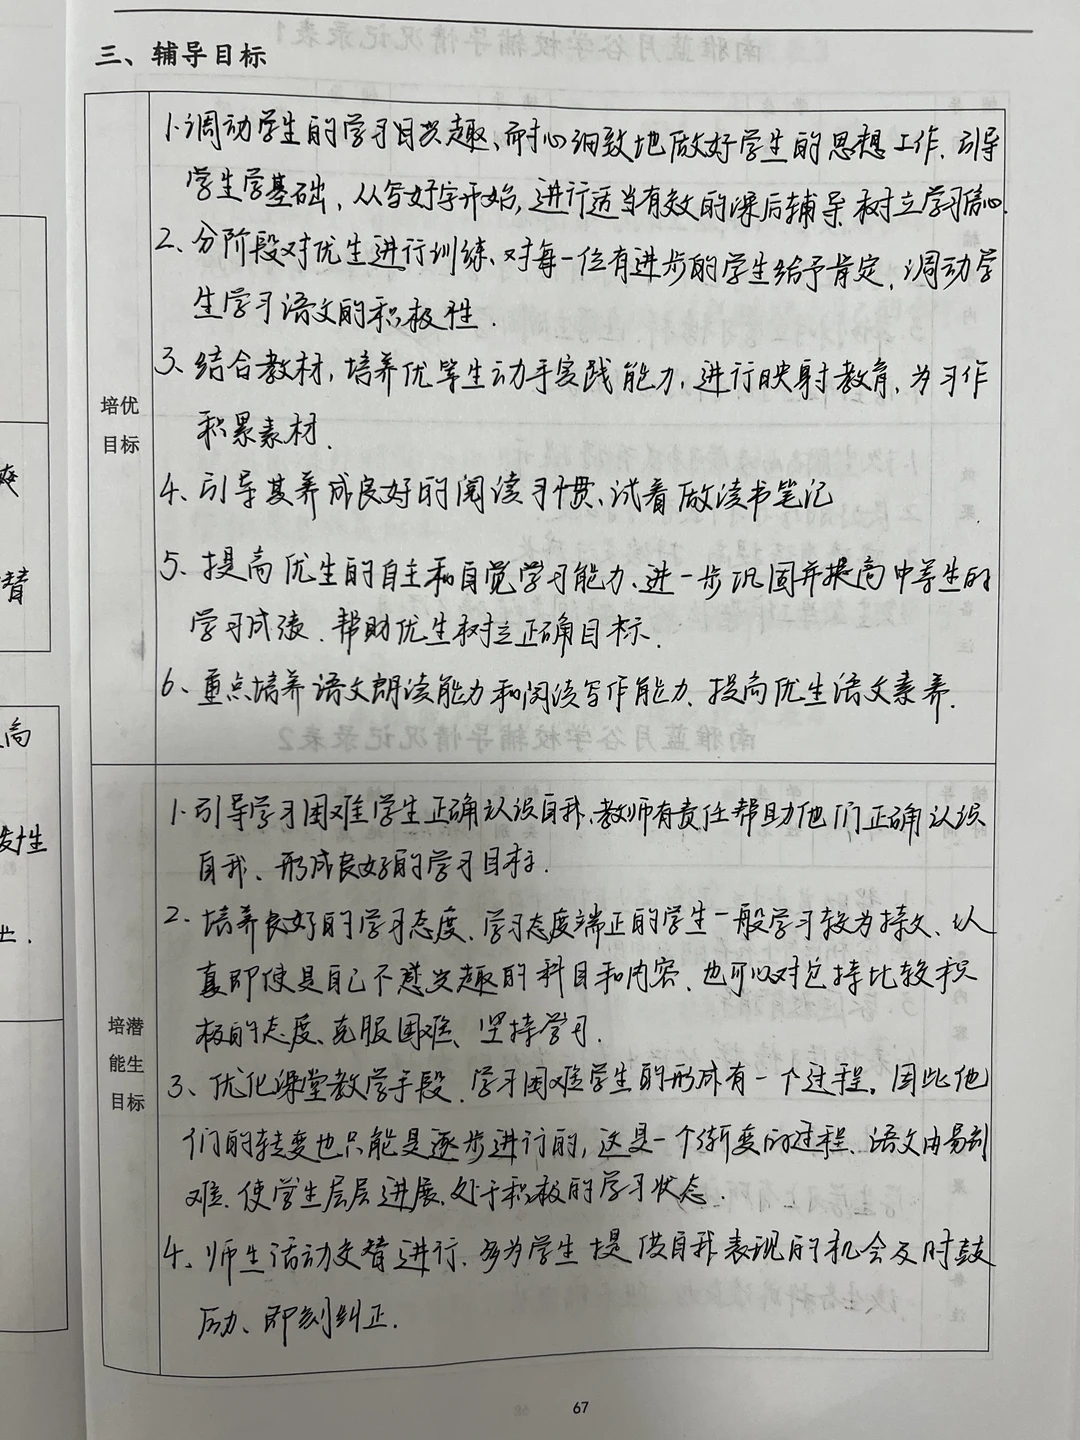 三、辅导目标
培优
目标
1.调动学生的学习兴趣、耐心细致地做好学生的思想工作、引导
学生学基础，从写好字开始，进行适当有效的课后辅导树立学习信心.
2、分阶段对优生进行训练、对每一位有进步的学生给予肯定，调动学
生学习语文的积极性.
3、结合教材，培养优等生动手实践能力，进行映射教育，为习作
积累素材.
4、引导其养成良好的阅读习惯、试着做读书笔记
5、提高优生的自主和自觉学习能力、进一步巩固并提高中等生的
学习成绩、帮助优生树立正确目标.
6、重点培养语文朗读能力和阅读写作能力、提高优生语文素养.
培潜
能生
目标
1.引导学习困难学生正确认识自我、教师有责任帮助他们正确认识
自我、形成良好的学习目标.
2、培养良好的学习态度、学习态度端正的学生一般学习较为持久、认
真即使是自己不感兴趣的科目和内容、也可以对它持比较积
极的态度、克服困难、坚持学习.
3、优化课堂教学手段、学习困难学生的形成有一个过程。因此他
们的转变也只能是逐步进行的，这是一个渐变的过程、语文由易到
难、使学生层层进展、处于积极的学习状态.
4、师生活动交替进行、多为学生提供自我表现的机会及时鼓
励、即刻纠正.
67
高
性